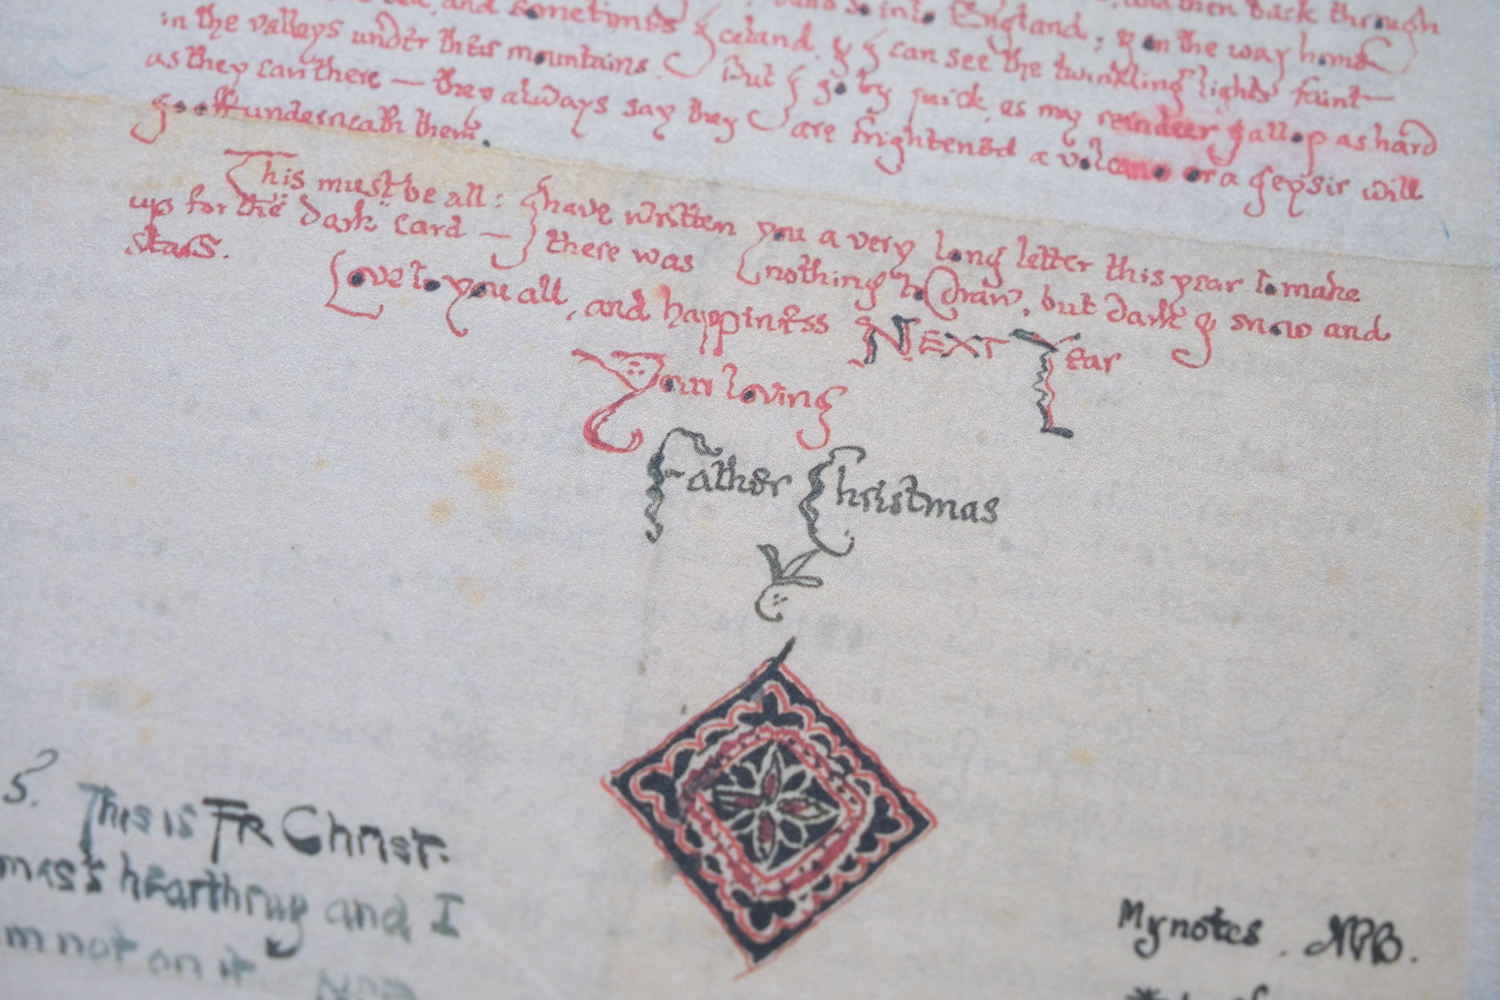 and sometimes into England; & on the way home
in the valleys under their mountains. But I go by quick, as my reindeer gallop as hard
as they can there — they always say they are frightened a volcano or a geysir will
go off underneath them.
This must be all: I have written you a very long letter this year to make
up for the "dark" card — there was nothing to draw, but dark & snow and
stars.
Love to you all, and happiness NEXT Year
Your loving
Father Christmas
5. This is FR Christ-
mas's hearthrug and I
m not on it NPB
My notes. NPB.